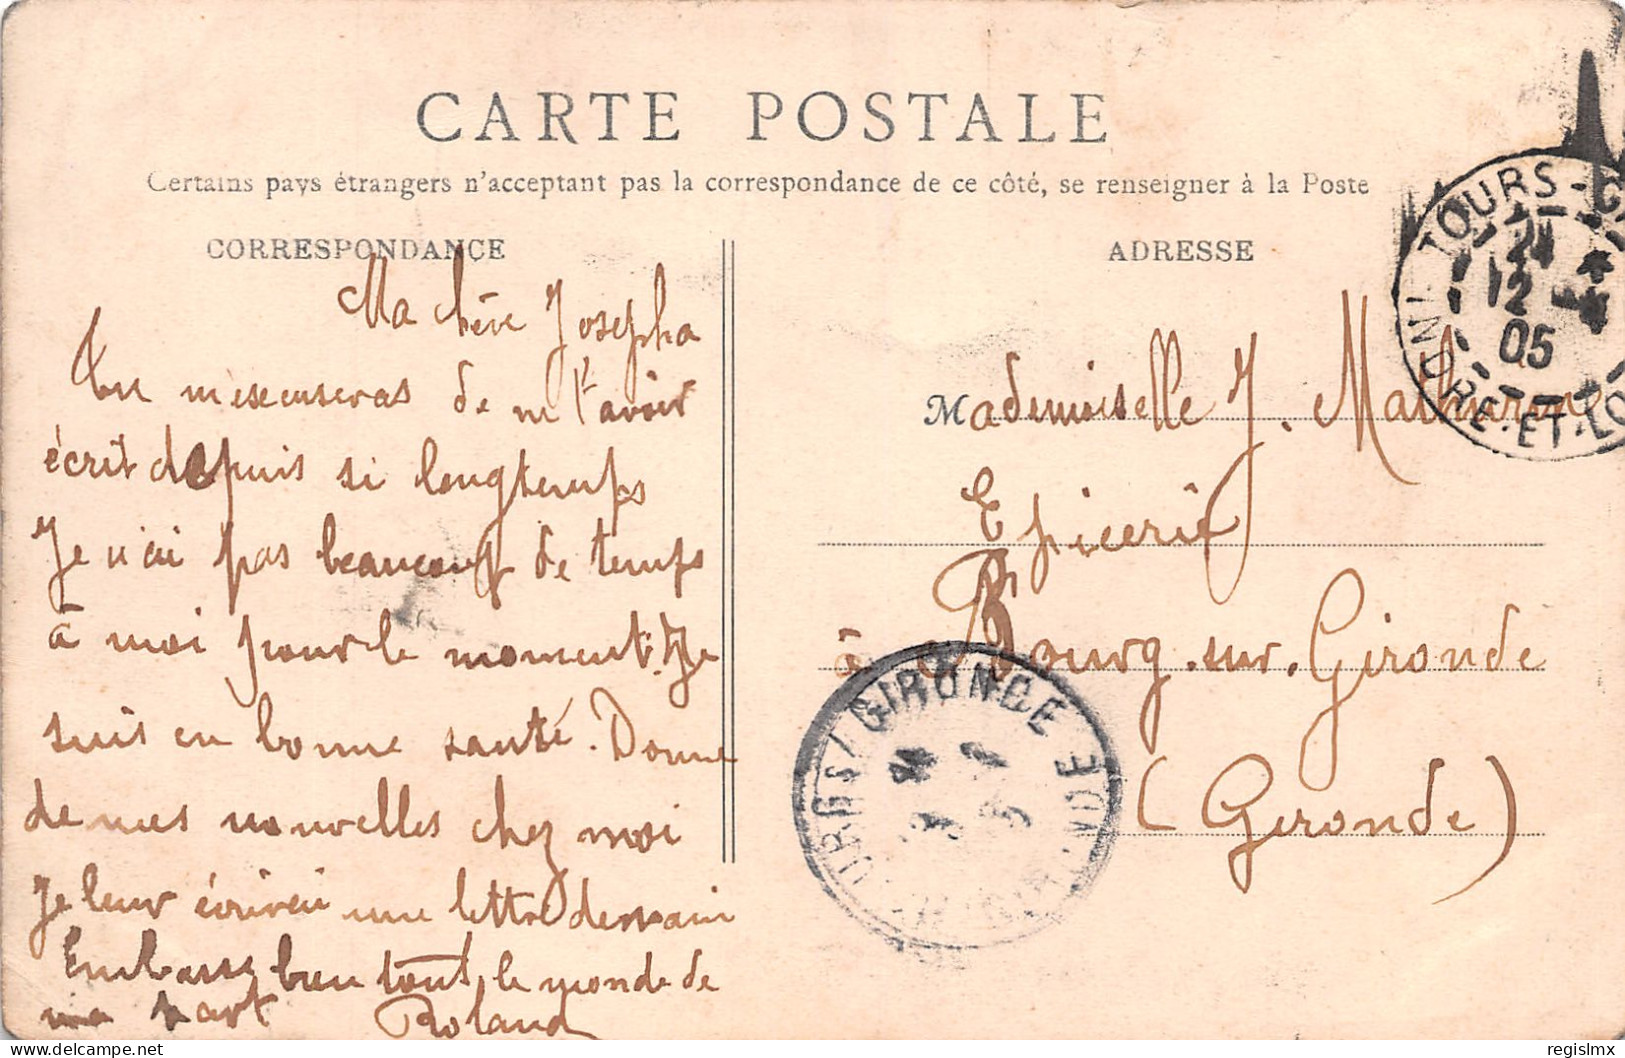 CARTE POSTALE
Certains pays étrangers n'acceptant pas la correspondance de ce côté, se renseigner à la Poste
CORRESPONDANCE
Ma chère Josepha
Tu m'excuseras de ne t'avoir
écrit depuis si longtemps
Je n'ai pas beaucoup de temps
à moi pour le moment. Je
suis en bonne santé. Donne
de mes nouvelles chez moi
Je leur écrirai une lettre demain
Embasse bien tout le monde de
ma part Roland
ADRESSE
Mademoiselle J. Mathurin
Epicerie
à Bourg-sur-Gironde
(Gironde)
TOURS-G
24
12
05
INDRE-ET-LO
GIRONDE
regislmx